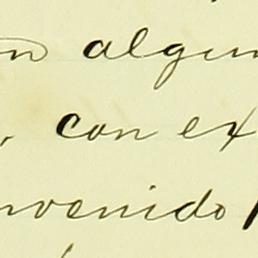 n algun
, con ex
nvenido